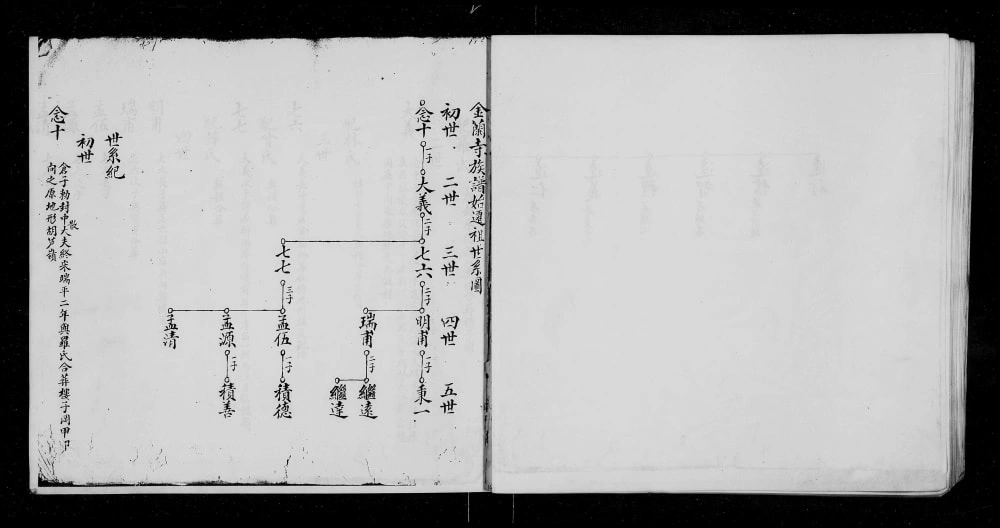 金蘭寺族譜始遷祖世系圖
初世 二世 三世 四世 五世
念十 一子 大義 二子 七六 二子 明甫 一子 東一
瑞甫 二子 繼遠
繼達
七七 三子 孟伍 一子 積德
孟源 一子 積善
孟清
世系紀
初世
念十
倉子勅封中散大夫終宋端平二年與羅氏合葬樓子岡甲卯
向之原地形胡芦嶺